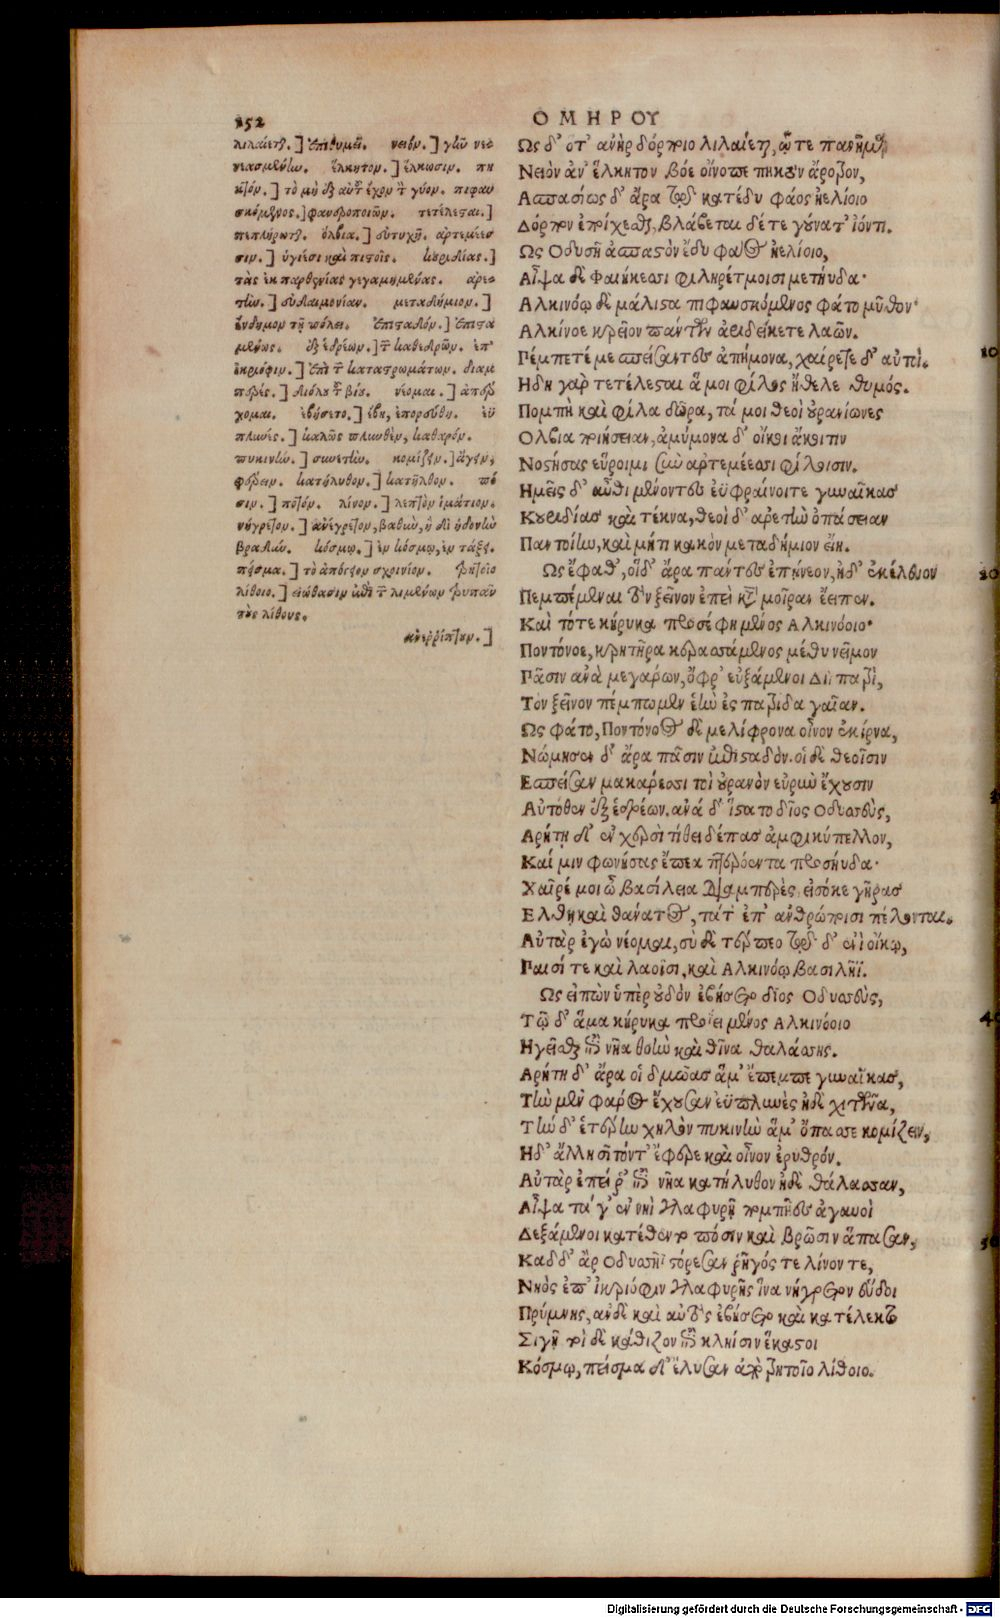 252
ΟΜΗΡΟΥ
λιλαίεται.] ἐπιθυμεῖ. νειόν.] γῆν νεο
νεασμένην. ἕλκητον.] ἕλκωσιν. πη
κτόν.] τὸ μὴ ἐξ αὐτοῦ ἔχον τ γύον. πιφαυ
σκόμενος.] φανεροποιῶν. τετέλεσται.]
πεπλήρωται. ὄλβια.] εὐτυχῆ. ἀρτεμέεσ
σιν.] ὑγιέσι καὶ πιστοῖς. κουριδίας.]
τὰς ἐκ παρθενίας γεγαμημένας. ἀρε-
τὴν.] εὐδαιμονίαν. μεταδήμιον.]
ἔνδημον τῇ πόλει. ἐπισταδόν.] ἐπιστα
μένως. ἐξ ἑδρέων.] τ καθεδρῶν. ἐπ'
ἰκριόφιν.] ἐπὶ τ καταστρωμάτων. διαμ
περές.] διόλου τοῦ βίου. νέομαι.] ἀπέρ
χομαι. ἐβήσετο.] ἔβη, ἐπορεύθη. ἐϋ
πλυνές.] καλῶς πλυνθὲν, καθαρόν.
πυκινὴν.] συνετὴν. κομίζειν.] ἄγειν,
φέρειν. κατήλυθον.] κατῆλθον. πό
σιν.] ποτόν. λίνον.] λεπτὸν ἱμάτιον.
νήγρετον.] ἀνέγρετον, βαθὺν, ἢ δι' ἡδονὴν
βραδύν. κόσμῳ.] ἐν κόσμῳ, ἐν τάξει.
πεῖσμα.] τὸ ἀπόγειον σχοινίον. τρητοῖο
λίθοιο.] εἰώθασιν ἐπὶ τ λιμένων τρυπᾶν
τοὺς λίθους.
ἀνερρίπτουν.]
Ως δ' ὅτ' ἀνὴρ δόρποιο λιλαίεται, ᾧ τε πανῆμαρ
Νειὸν ἀν' ἕλκητον βόε οἴνοπε πηκτὸν ἄροτρον,
Ασπασίως δ' ἄρα τῷ κατέδυ φάος ἠελίοιο
Δόρπον ἐποίχεσθαι, βλάβεται δέ τε γούνατ' ἰόντι.
Ως Οδυσῆ ἀσπαστὸν ἔδυ φάος ἠελίοιο,
Αἶψα δὲ Φαιήκεσσι φιληρέτμοισι μετηύδα·
Αλκινόῳ δὲ μάλιστα πιφαυσκόμενος φάτο μῦθον·
Αλκίνοε κρεῖον πάντων ἀριδείκετε λαῶν.
Πέμπετέ με σπείσαντες ἀπήμονα, χαίρετε δ' αὐτοί. 10
Ηδη γὰρ τετέλεσται ἅ μοι φίλος ἤθελε θυμός.
Πομπὴ καὶ φίλα δῶρα, τά μοι θεοὶ οὐρανίωνες
Ολβια ποιήσειαν, ἀμύμονα δ' οἴκοι ἄκοιτιν
Νοστήσας εὕροιμι σὺν ἀρτεμέεσσι φίλοισιν.
Ημεῖς δ' αὖθι μένοντες ἐϋφραίνοιτε γυναῖκας
Κουριδίας καὶ τέκνα, θεοὶ δ' ἀρετὴν ὀπάσειαν
Παντοίην, καὶ μήτι κακὸν μεταδήμιον εἴη.
Ως ἔφαθ', οἱ δ' ἄρα πάντες ἐπῄνεον, ἠδ' ἐκέλευον 20
Πεμπέμεναι τὸν ξεῖνον ἐπεὶ κατὰ μοῖραν ἔειπεν.
Καὶ τότε κήρυκα προσέφη μένος Αλκινόοιο·
Ποντόνοε, κρητῆρα κερασσάμενος μέθυ νεῖμον
Πᾶσιν ἀνὰ μεγάρων, ὄφρ' εὐξάμενοι Διῒ πατρὶ,
Τὸν ξεῖνον πέμπωμεν ἑὴν ἐς πατρίδα γαῖαν.
Ως φάτο, Ποντόνοος δὲ μελίφρονα οἶνον ἐκίρνα,
Νώμησεν δ' ἄρα πᾶσιν ἐπισταδόν. οἱ δὲ θεοῖσιν
Εσπεισαν μακάρεσσι τοὶ οὐρανὸν εὐρὺν ἔχουσιν
Αὐτόθεν ἐξ ἑδρέων. ἀνά δ' ἵστατο δῖος Οδυσσεὺς,
Αρήτῃ δ' ἐν χερσὶ τίθει δέπας ἀμφικύπελλον,
Καί μιν φωνήσας ἔπεα πτερόεντα προσηύδα·
Χαῖρέ μοι ὦ βασίλεια διαμπερὲς, εἰσόκε γῆρας
Ελθῃ καὶ θάνατος, τά τ' ἐπ' ἀνθρώποισι πέλονται.
Αὐτὰρ ἐγὼ νέομαι, σὺ δὲ τέρπεο τῷδ' ἐνὶ οἴκῳ,
Παισί τε καὶ λαοῖσι, καὶ Αλκινόῳ βασιλῆϊ.
Ως εἰπὼν ὑπὲρ οὐδὸν ἐβήσετο δῖος Οδυσσεὺς,
Τῷ δ' ἅμα κήρυκα προΐει μένος Αλκινόοιο 40
Ηγεῖσθαι ἐπὶ νῆα θοὴν καὶ θῖνα θαλάσσης.
Αρήτη δ' ἄρα οἱ δμωὰς ἅμ' ἔπεμπε γυναῖκας,
Τὴν μὲν φᾶρος ἔχουσαν ἐϋπλυνὲς ἠδὲ χιτῶνα,
Τὴν δ' ἑτέρην χηλὸν πυκινὴν ἅμ' ὄπασσε κομίζειν,
Ηδ' ἄλλη σῖτόν τ' ἔφερε καὶ οἶνον ἐρυθρόν.
Αὐτὰρ ἐπεί ῥ' ἐπὶ νῆα κατήλυθον ἠδὲ θάλασσαν,
Αἶψα τά γ' ἐν νηῒ γλαφυρῇ πομπῆες ἀγαυοὶ
Δεξάμενοι κατέθεντο πόσιν καὶ βρῶσιν ἅπασαν, 50
Καδ δ' ἄρ Οδυσσῆϊ στόρεσαν ῥῆγός τε λίνον τε,
Νηὸς ἐπ' ἰκριόφιν γλαφυρῆς ἵνα νήγρετον εὕδοι
Πρύμνης, ἀνδὲ καὶ αὐτὸς ἐβήσετο καὶ κατέλεκτο
Σιγῇ τοὶ δὲ κάθιζον ἐπὶ κληῖσιν ἕκαστοι
Κόσμῳ, πεῖσμα δ' ἔλυσαν ἀπὸ τρητοῖο λίθοιο.
Digitalisierung gefördert durch die Deutsche Forschungsgemeinschaft - DFG